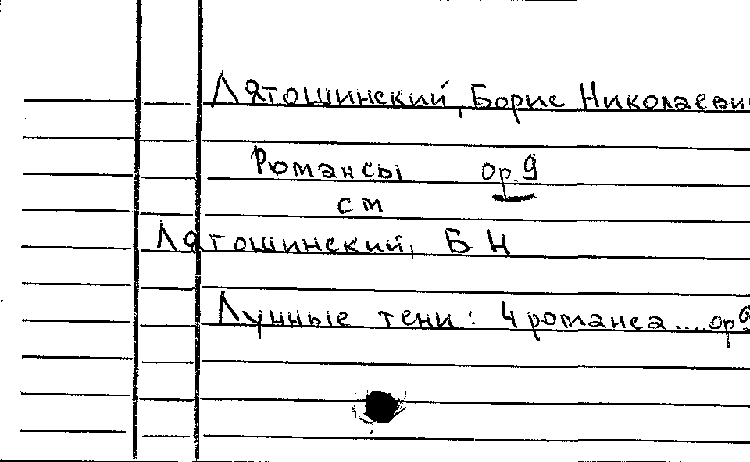 Лятошинский, Борис Николаеви
Романсы ор. 9
см
Лятошинский, Б Н
Лунные тени: 4 романса... ор 9